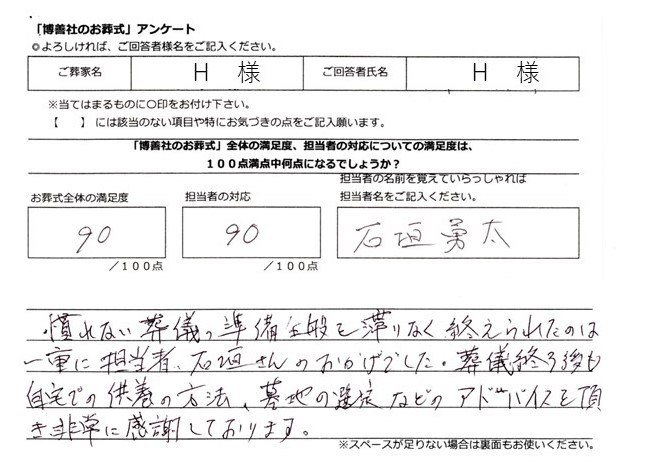 「博善社のお葬式」アンケート
◎よろしければ、ご回答者様名をご記入ください。
ご葬家名 H 様 ご回答者氏名 H 様
※当てはまるものに○印をお付け下さい。
【 】には該当のない項目や特にお気づきの点をご記入願います。
「博善社のお葬式」全体の満足度、担当者の対応についての満足度は、
100点満点中何点になるでしょうか?
担当者の名前を覚えていらっしゃれば
お葬式全体の満足度 担当者の対応 担当者名をご記入ください。
90 90 石垣勇太
/100点 /100点
・慣れない葬儀の準備全般を滞りなく終えられたのは
一重に担当者、石垣さんのおかげでした。葬儀終了後も
自宅での供養の方法、墓地の選定などのアドバイスを頂
き非常に感謝しております。
※スペースが足りない場合は裏面もお使いください。